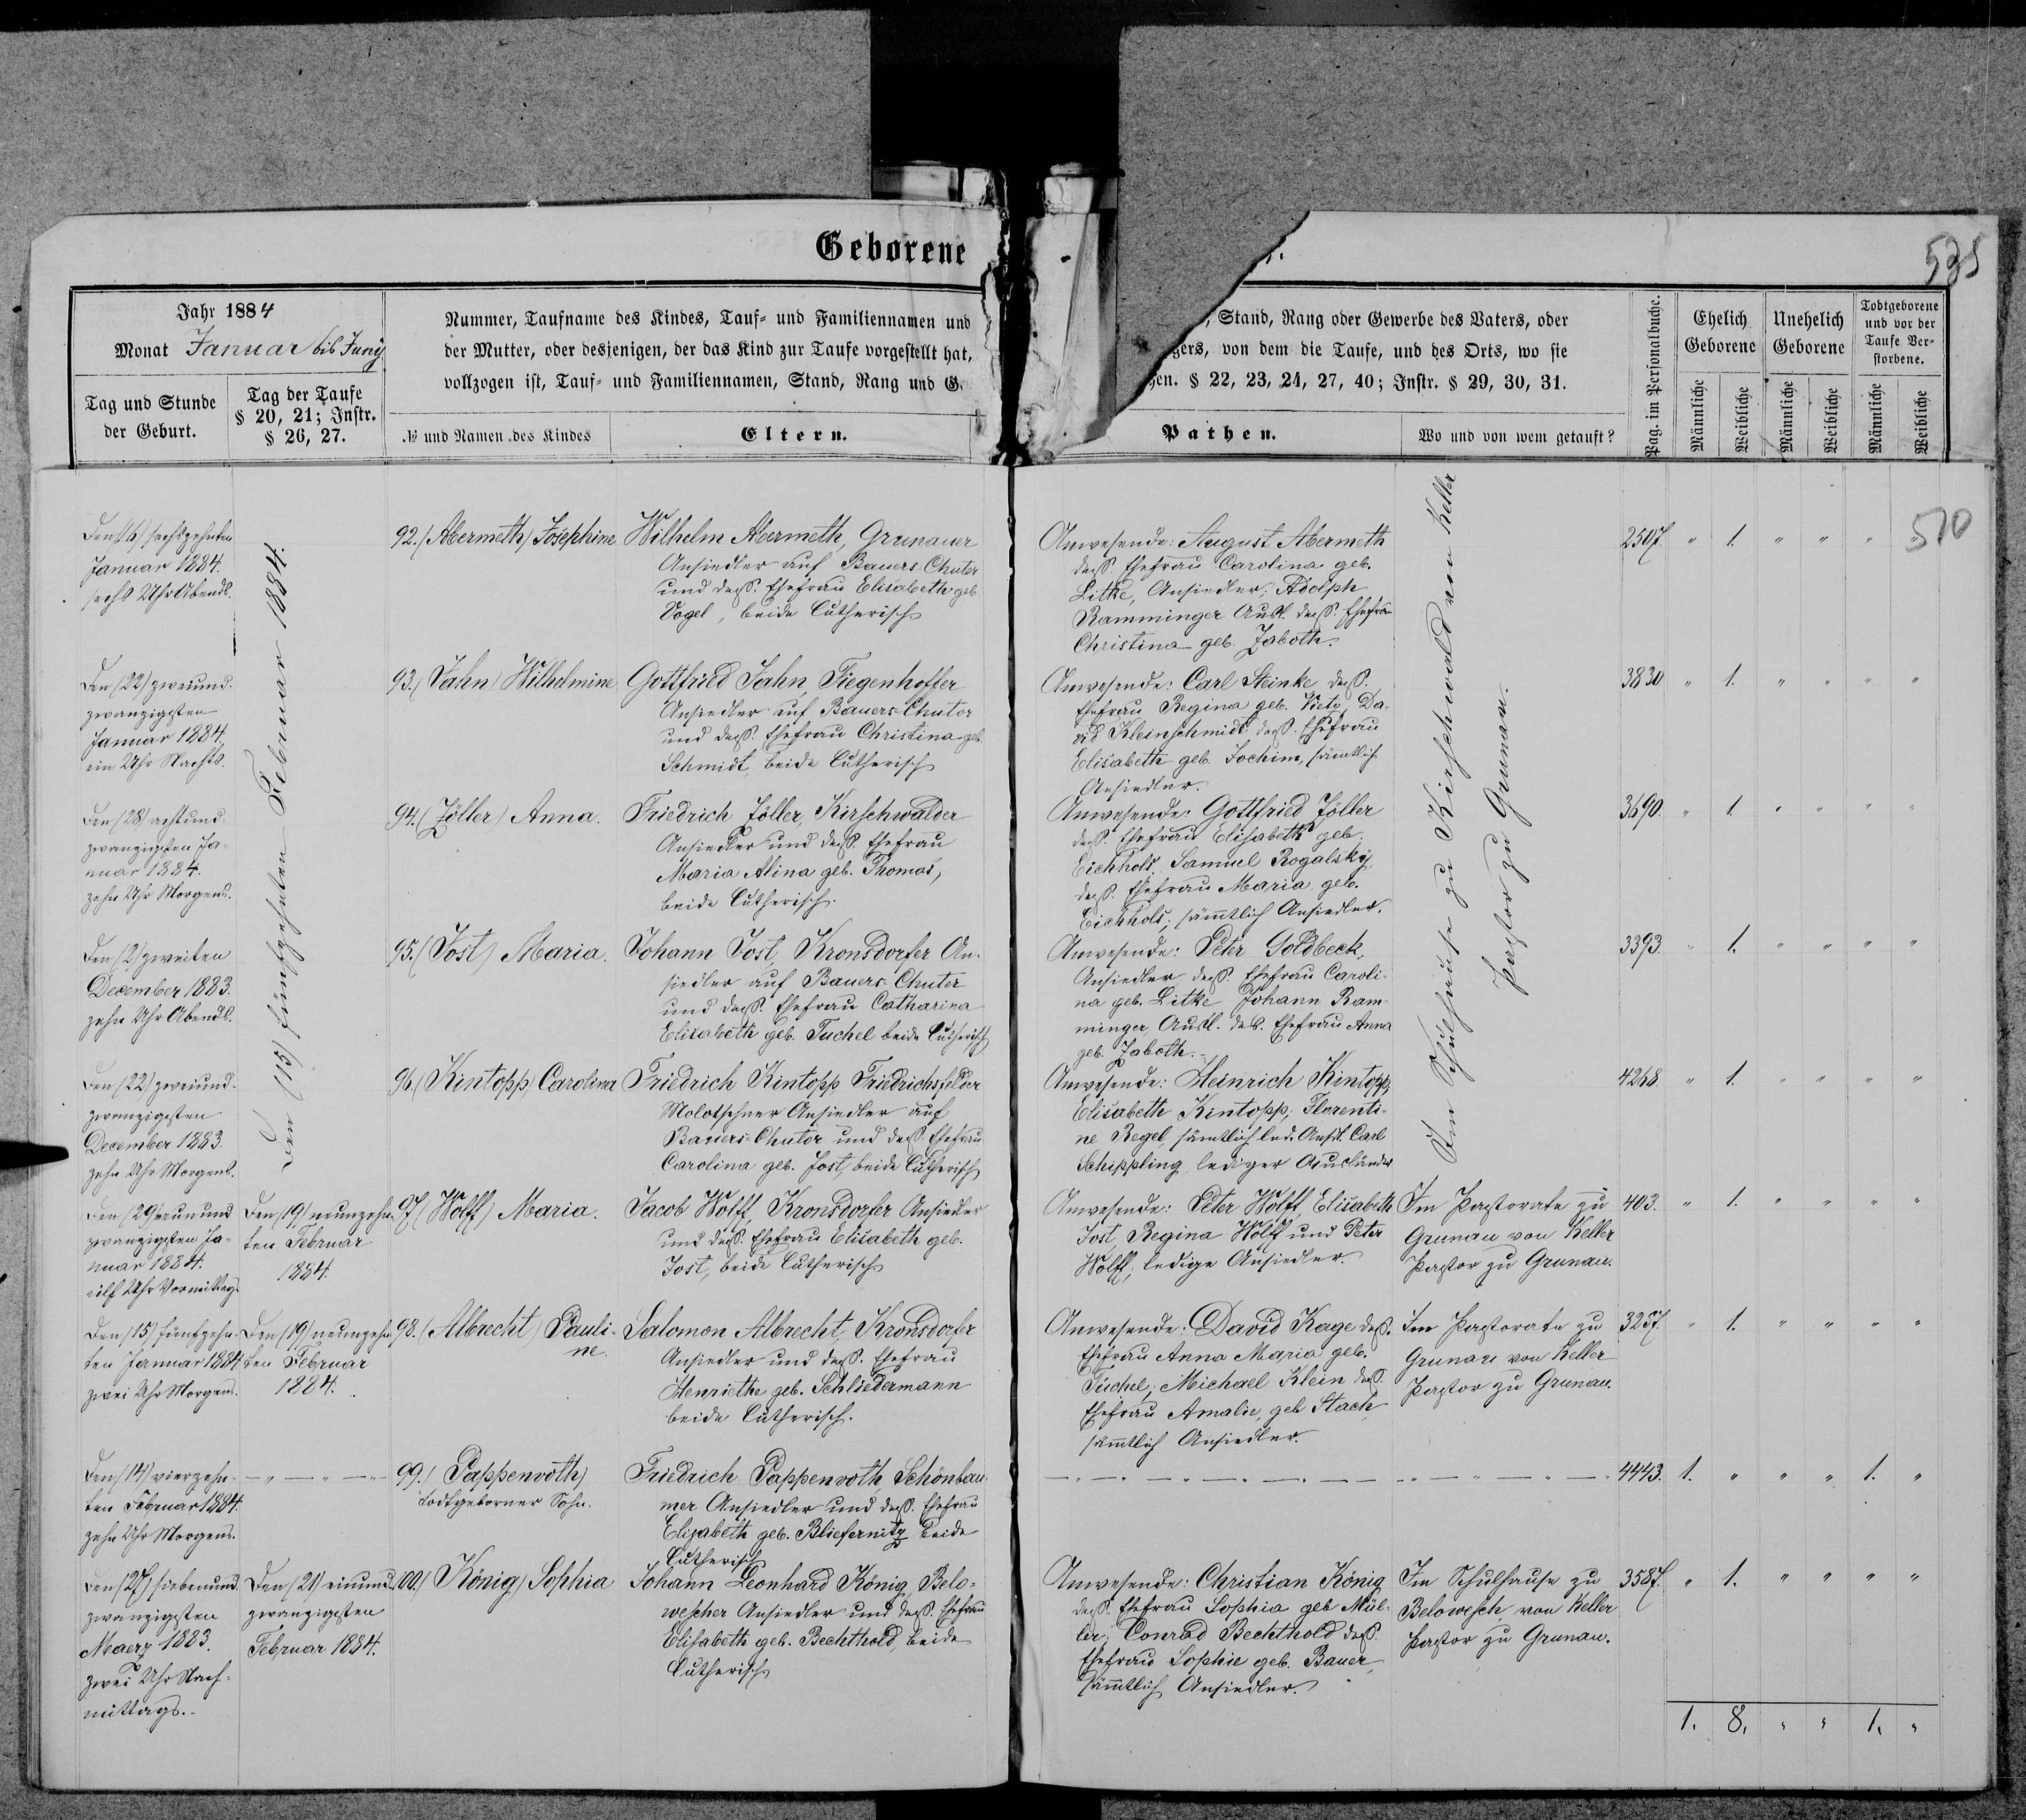 Geborene
535
Jahr 1884
Monat Januar bis Juny
Tag und Stunde
der Geburt.
Tag der Taufe
§ 20, 21; Instr.
§ 26, 27.
Nummer, Taufname des Kindes, Tauf- und Familiennamen und
der Mutter, oder desjenigen, der das Kind zur Taufe vorgestellt hat,
vollzogen ist, Tauf- und Familiennamen, Stand, Rang und
№ und Namen des Kindes
Eltern.
Stand, Rang oder Gewerbe des Vaters, oder
von dem die Taufe, und des Orts, wo sie
§ 22, 23, 24, 27, 40; Instr. § 29, 30, 31.
Pathen.
Wo und von wem getauft?
Pag. im Personalbuche.
Ehelich
Geborene
Unehelich
Geborene
Todtgeborene
und vor der
Taufe Ver-
storbene.
Männliche
Weibliche
Männliche
Weibliche
Männliche
Weibliche
Den (15) fünfzehnten Februar 1884.
Im Schulhause zu Kirschwald von Keller
Pastor zu Grunau.
510
Den (16) sechszehnten
Januar 1884.
sechs Uhr Abends.
92. (Abermeth) Josephine
Wilhelm Abermeth, Grunauer
Ansiedler auf Bauers-Chutor
und dess. Ehefrau Elisabeth geb
Vogel, beide lutherisch
Anwesende: August Abermeth
dess. Ehefrau Carolina geb.
Litke, Ansiedler; Adolph
Ramminger Ausl. dess. Ehefrau
Christina geb. Zaboth.
2507. " 1. " " "
Den (22) zweiund-
zwanzigsten
Januar 1884.
ein Uhr Nachts.
93. (Jahn) Wilhelmine
Gottfried Jahn, Tiegenhoffer
Ansiedler auf Bauers-Chutor
und dess. Ehefrau Christina geb.
Schmidt, beide lutherisch
Anwesende: Carl Steinke dess.
Ehefrau Regina geb. Vietz, Da-
vid Kleinschmidt dess. Ehefrau
Elisabeth geb. Jochim, sämtlich
Ansiedler.
3830 " 1. " " " "
Den (28) achtund-
zwanzigsten Ja-
nuar 1884.
zehn Uhr Morgens.
94. (Zöller) Anna.
Friedrich Zöller, Kirschwalder
Ansiedler und dess. Ehefrau
Maria Alina geb. Thomas,
beide lutherisch.
Anwesende: Gottfried Zöller
dess. Ehefrau Elisabeth geb.
Eichholz, Samuel Rogalsky
dess. Ehefrau Maria geb.
Eichholz; sämtlich Ansiedler.
3690. " 1. " " " "
Den (2) zweiten
December 1883.
zehn Uhr Abends.
95. (Jost) Maria.
Johann Jost, Kronsdorfer An-
siedler auf Bauers-Chutor
und dess. Ehefrau Catharina
Elisabeth geb. Tuchel beide lutherisch
Anwesende: Peter Goldbeck,
Ansiedler dess. Ehefrau Caroli-
na geb. Litke Johann Ram-
minger, Ausl. dess. Ehefrau Anna
geb. Zaboth.
3393. " 1. " " " "
Den (22) zweiund-
zwanzigsten
December 1883.
zehn Uhr Morgens.
96. (Kintopp) Carolina
Friedrich Kintopp, Friedrichsfelder
Molotschner Ansiedler auf
Bauers-Chutor und dess. Ehefrau
Carolina geb. Jost, beide lutherisch
Anwesende: Heinrich Kintopp,
Elisabeth Kintopp, Florenti-
ne Regel, sämtlich led. Ansdl. Carl
Schippling lediger Ausländer
4268. " 1. " " " "
Den (29) neunund
zwanzigsten Ja-
nuar 1884.
eilf Uhr Vormittag.
Den (19) neunzehn-
ten Februar
1884.
97. (Wolff) Maria.
Jacob Wolff, Kronsdorfer Ansiedler
und dess. Ehefrau Elisabeth geb.
Jost, beide lutherisch
Anwesende: Peter Wolff, Elisabeth
Jost Regina Wolff und Peter
Wolff, ledige Ansiedler.
Im Pastorate zu
Grunau von Keller
Pastor zu Grunau.
403. " 1. " " " "
Den (15) fünfzehn-
ten Januar 1884.
zwei Uhr Morgens.
Den (19) neunzehn
ten Februar
1884.
98. (Albrecht) Pauli-
ne.
Salomon Albrecht, Kronsdorfer
Ansiedler und dess. Ehefrau
Henriethe geb. Schliedermann
beide lutherisch.
Anwesende: David Kage dess.
Ehefrau Anna Maria geb.
Tuchel, Michael Klein dess.
Ehefrau Amalie, geb Stach
sämtlich Ansiedler.
Im Pastorate zu
Grunau von Keller
Pastor zu Grunau.
3237. " 1. " " " "
Den (14) vierzehn-
ten Februar 1884.
zehn Uhr Morgens.
99. (Pappenroth)
todtgeborner Sohn.
Friedrich Pappenroth, Schönbau-
mer Ansiedler und dess. Ehefrau
Elisabeth geb. Bliefernitz beide
lutherisch
4443. 1. " " " 1. "
Den (27) siebenund
zwanzigsten
Maerz 1883.
zwei Uhr Nach-
mittags.
Den (21) einund
zwanzigsten
Februar 1884.
100. (König) Sophia
Johann Leonhard König, Belo-
wescher Ansiedler und dess. Ehefrau
Elisabeth geb. Bechthold, beide
lutherisch
Anwesende: Christian König
dess. Ehefrau Sophia geb Mül-
ler, Conrad Bechthold dess.
Ehefrau Sophie geb. Bauer,
sämtlich Ansiedler.
Im Schulhause zu
Belowesch, von Keller
Pastor zu Grunau.
3587. " 1. " " " "
1. 8. " " 1. "